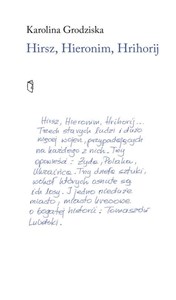 Karolina Grodziska
Hirsz, Hieronim, Hrihorij
Hirsz, Hieronim, Hrihorij...
Trzech starych ludzi i dużo
więcej wojen, przypadających
na każdego z nich. Trzy
opowieści: Żyda, Polaka,
Ukraińca. Trzy dzieła sztuki,
wokół których osnute są
ich losy. I jedno nieduże
miasto, miasto kresowe
o bogatej historii - Tomaszów
Lubelski.